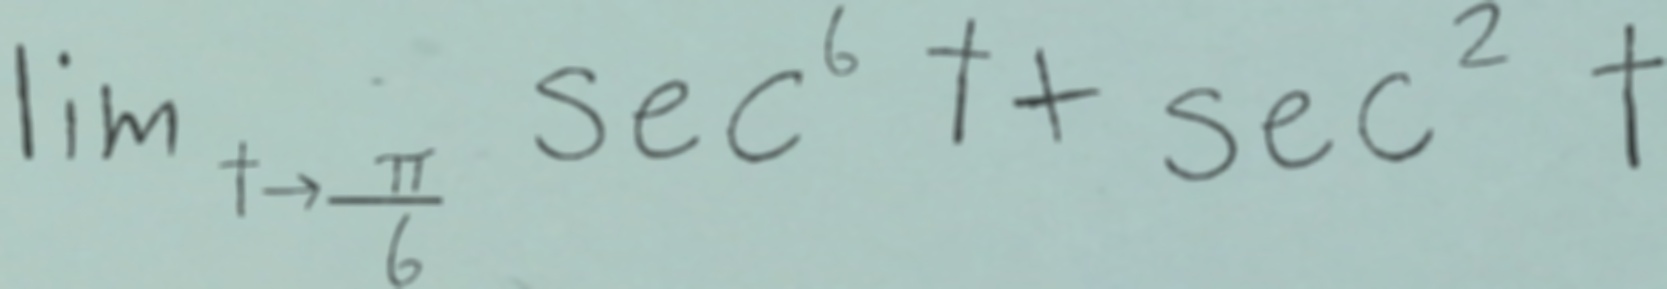 lim t→π/6 sec⁶ t + sec² t